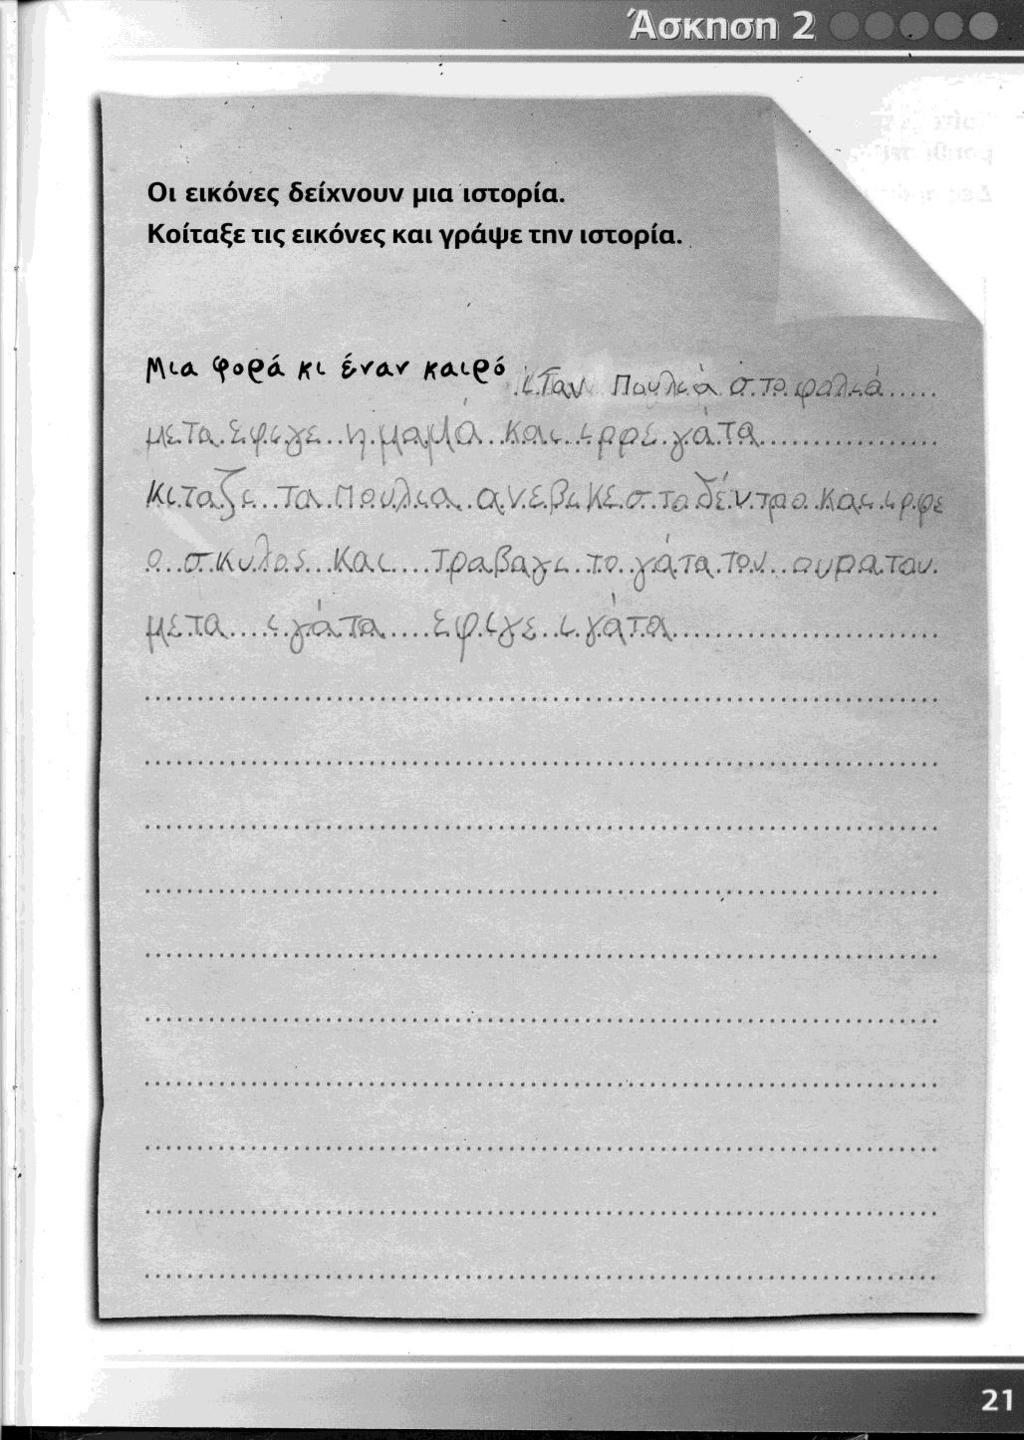 Άσκηση 2
Οι εικόνες δείχνουν μια ιστορία.
Κοίταξε τις εικόνες και γράψε την ιστορία.
Μια φορά κι έναν καιρό ιταν Πουλιά στο φολιά
μετα εφιγε η μαμά Και ιρρε γάτα
κιταζι τα Πουλια ανεβικε στο δέντρο Και ιρφε
ο σκυλος Και τραβαγι το γάτα τον ουρα του
μετα ι γάτα εφιγε ι γάτα
21